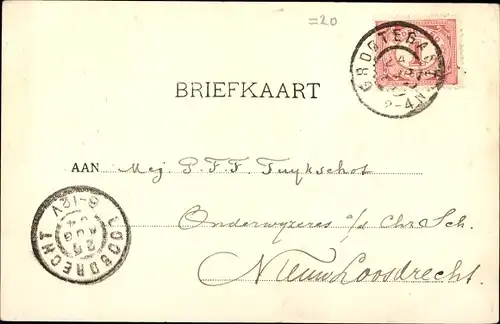 =20
GROOTEGAST
2-4N
BRIEFKAART
AAN Mej P.F.F. Tuykschot
Onderwijzeres a/d Chr. Sch.
Nieuw Loosdrecht.
LOOSDRECHT
8-12V
25
AUG